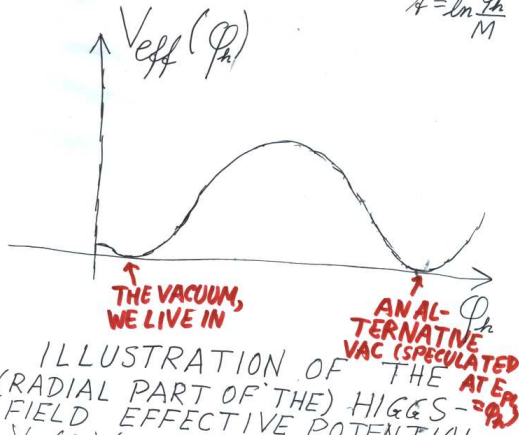 t = ln φh/M
Veff(φh)
THE VACUUM,
WE LIVE IN
AN AL-
TERNATIVE
VAC (SPECULATED
AT E
= φh)
φh
ILLUSTRATION OF THE
(RADIAL PART OF THE) HIGGS-
FIELD EFFECTIVE POTENTIAL